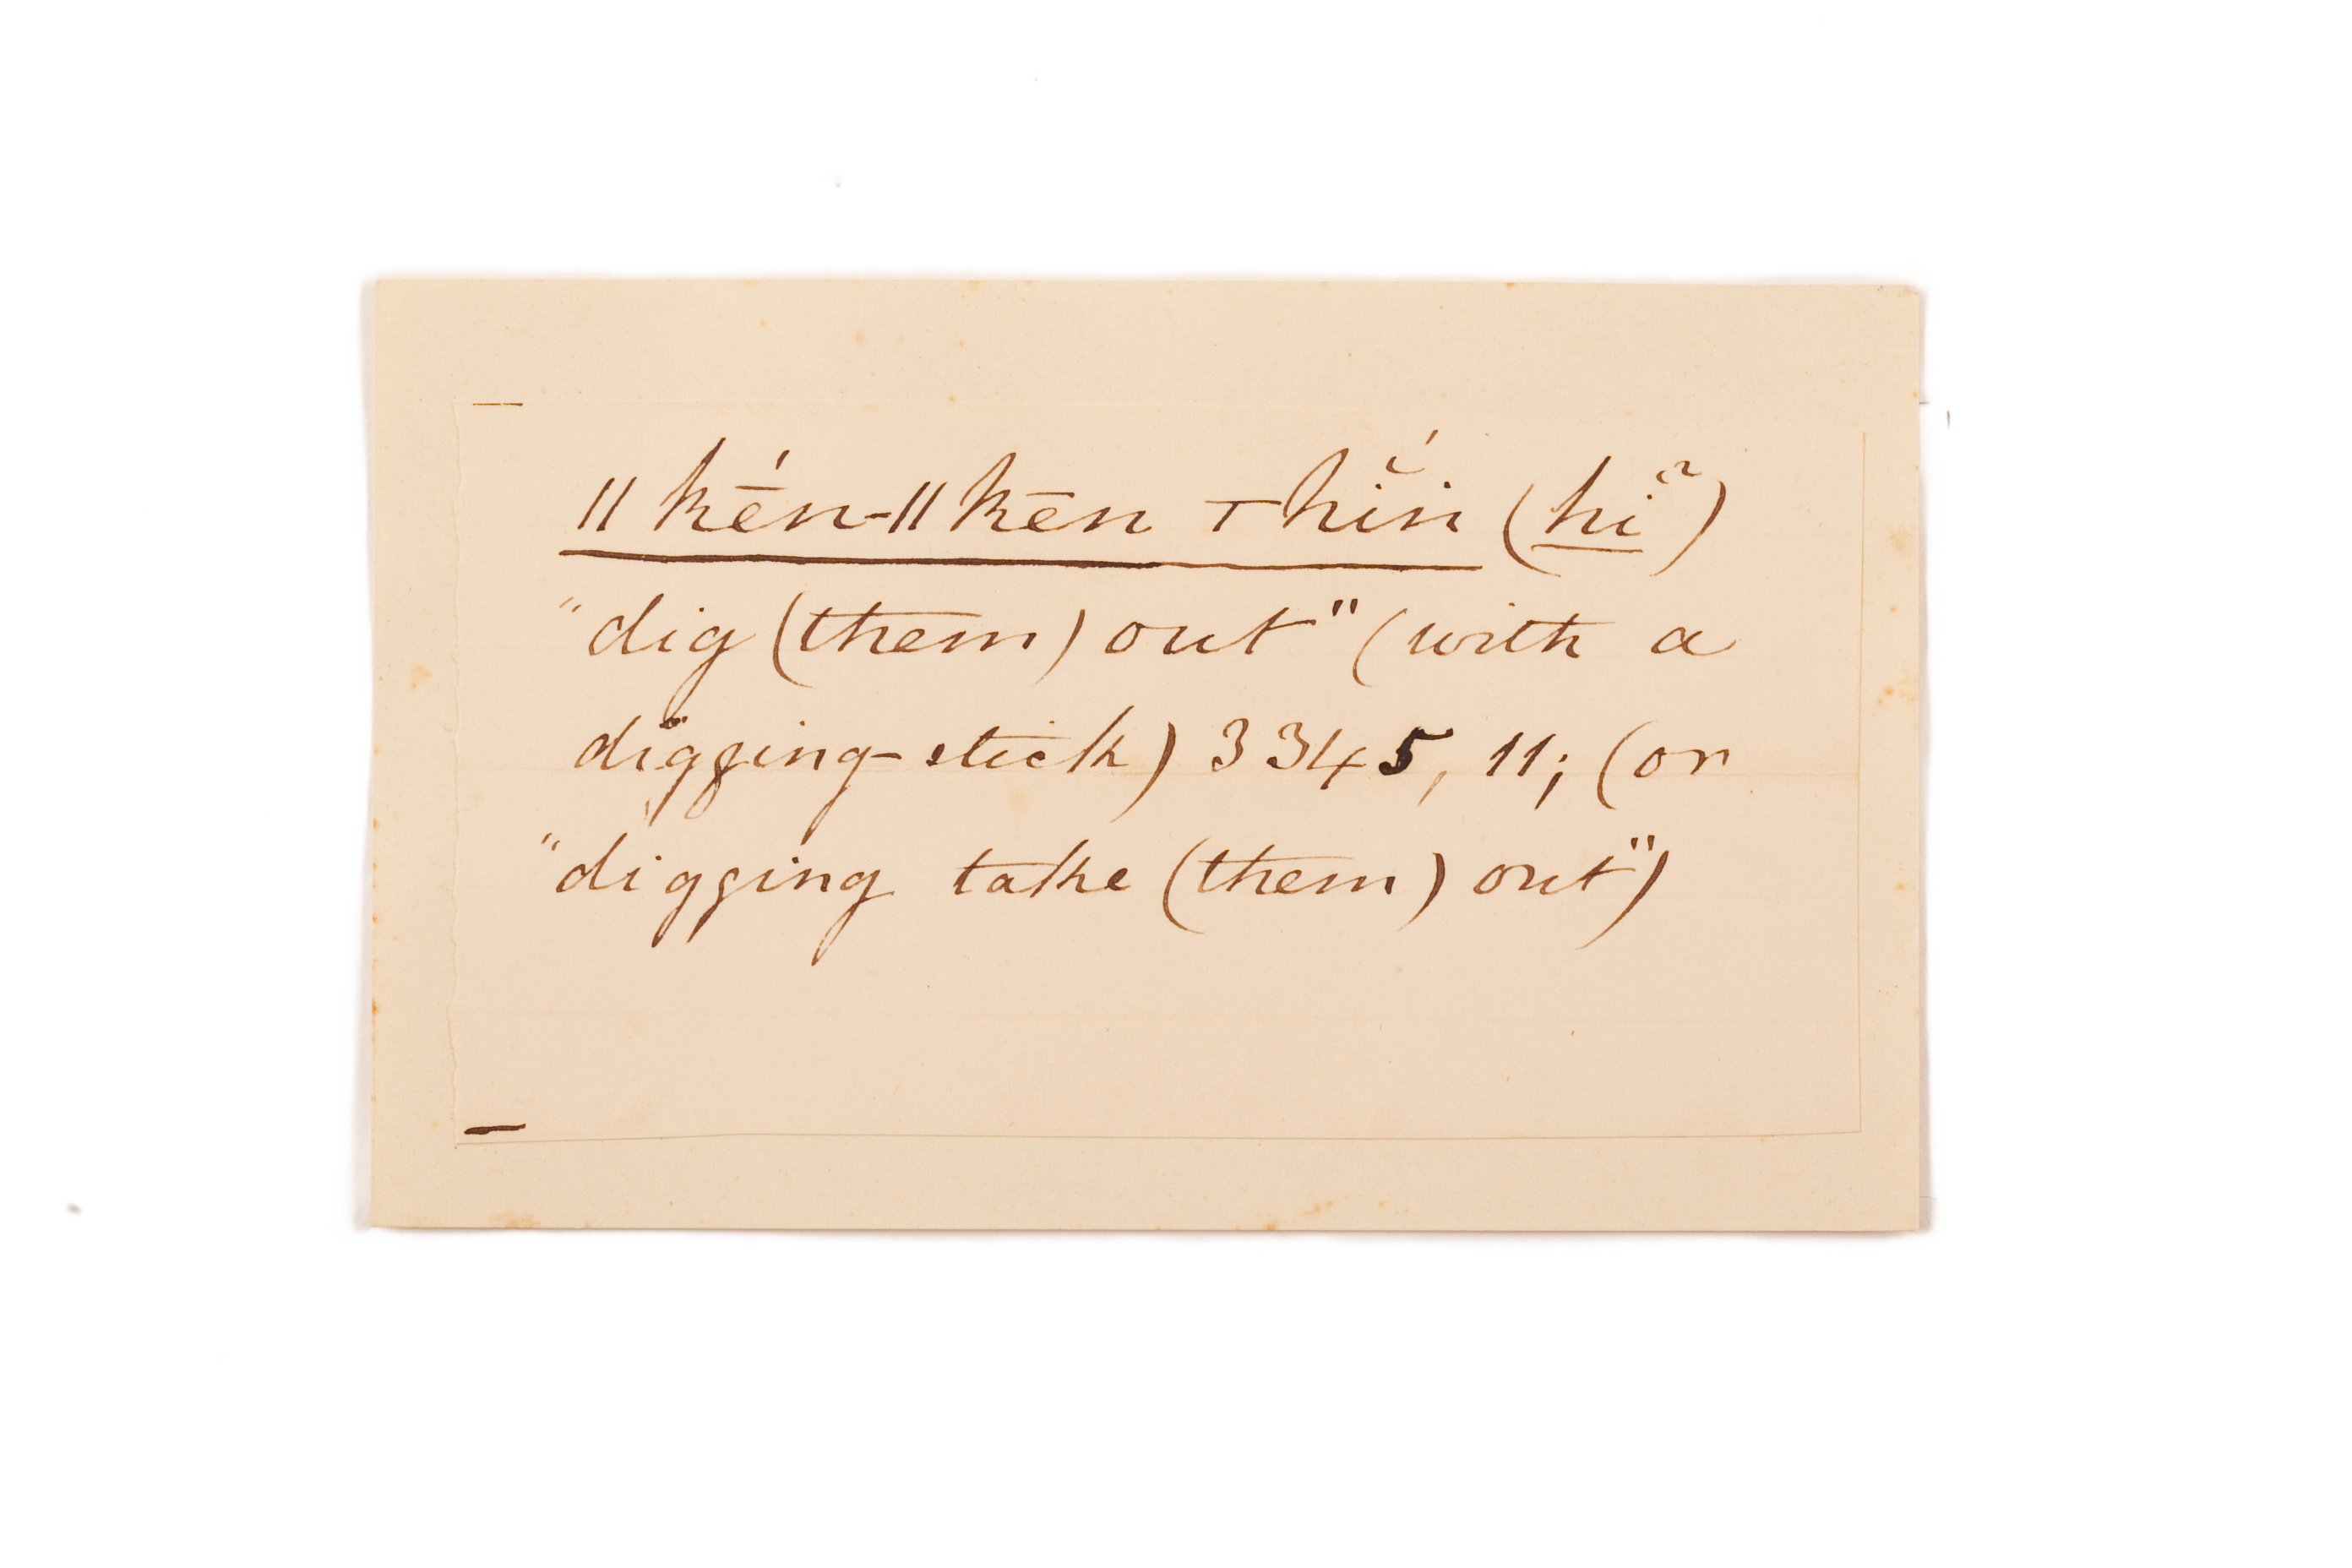 ǁkḗn-ǁkēn ⊤hĭ́n (hĭ̃)
"dig (them) out" (with a
digging-stick) 3345, 11; (or
"digging take (them) out")